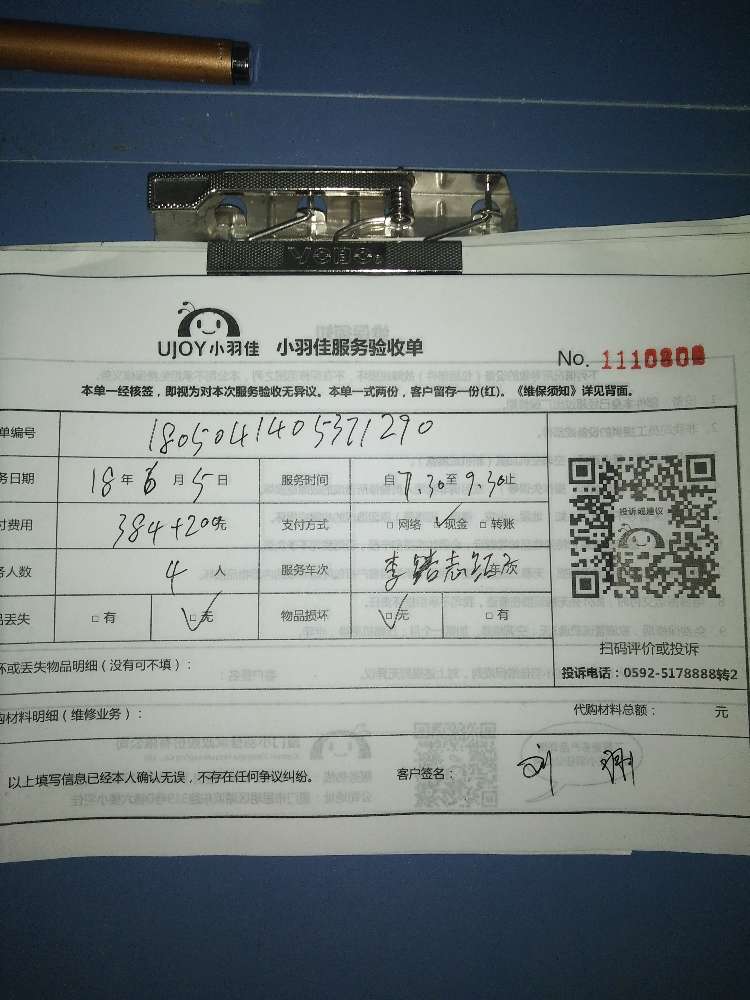 UJOY小羽佳 小羽佳服务验收单
No. 1110808
本单一经核签，即视为对本次服务验收无异议。本单一式两份，客户留存一份(红)。《维保须知》详见背面。
单编号 1805041405371290
务日期 18年6月5日 服务时间 自7.30至9.30止
付费用 384+200元 支付方式 □网络 ☑现金 □转账
务人数 4人 服务车次 李 志 车次
品丢失 □有 ☑无 物品损坏 ☑无 □有
投诉或建议
扫码评价或投诉
投诉电话：0592-5178888转2
坏或丢失物品明细（没有可不填）：
购材料明细（维修业务）： 代购材料总额： 元
以上填写信息已经本人确认无误，不存在任何争议纠纷。 客户签名： 刘